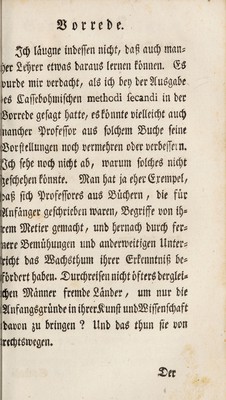 Vorrede.
Ich läugne indessen nicht, daß auch man-
her Lehrer etwas daraus lernen können. Es
wurde mir verdacht, als ich bey der Ausgabe
es Cassebohmischen methodi secandi in der
Vorrede gesagt hatte, es könnte vielleicht auch
nancher Professor aus solchem Buche seine
Vorstellungen noch vermehren oder verbessern.
Ich sehe noch nicht ab, warum solches nicht
geschehen könnte. Man hat ja eher Exempel,
daß sich Professores aus Büchern, die für
Anfänger geschrieben waren, Begriffe von ih-
rem Metier gemacht, und hernach durch fer-
nere Bemühungen und anderweitigen Unter-
richt das Wachsthum ihrer Erkenntniß be-
fördert haben. Durchreisen nicht öfters derglei-
chen Männer fremde Länder, um nur die
Anfangsgründe in ihrer Kunst und Wissenschaft
davon zu bringen? Und das thun sie von
rechtswegen.
Der